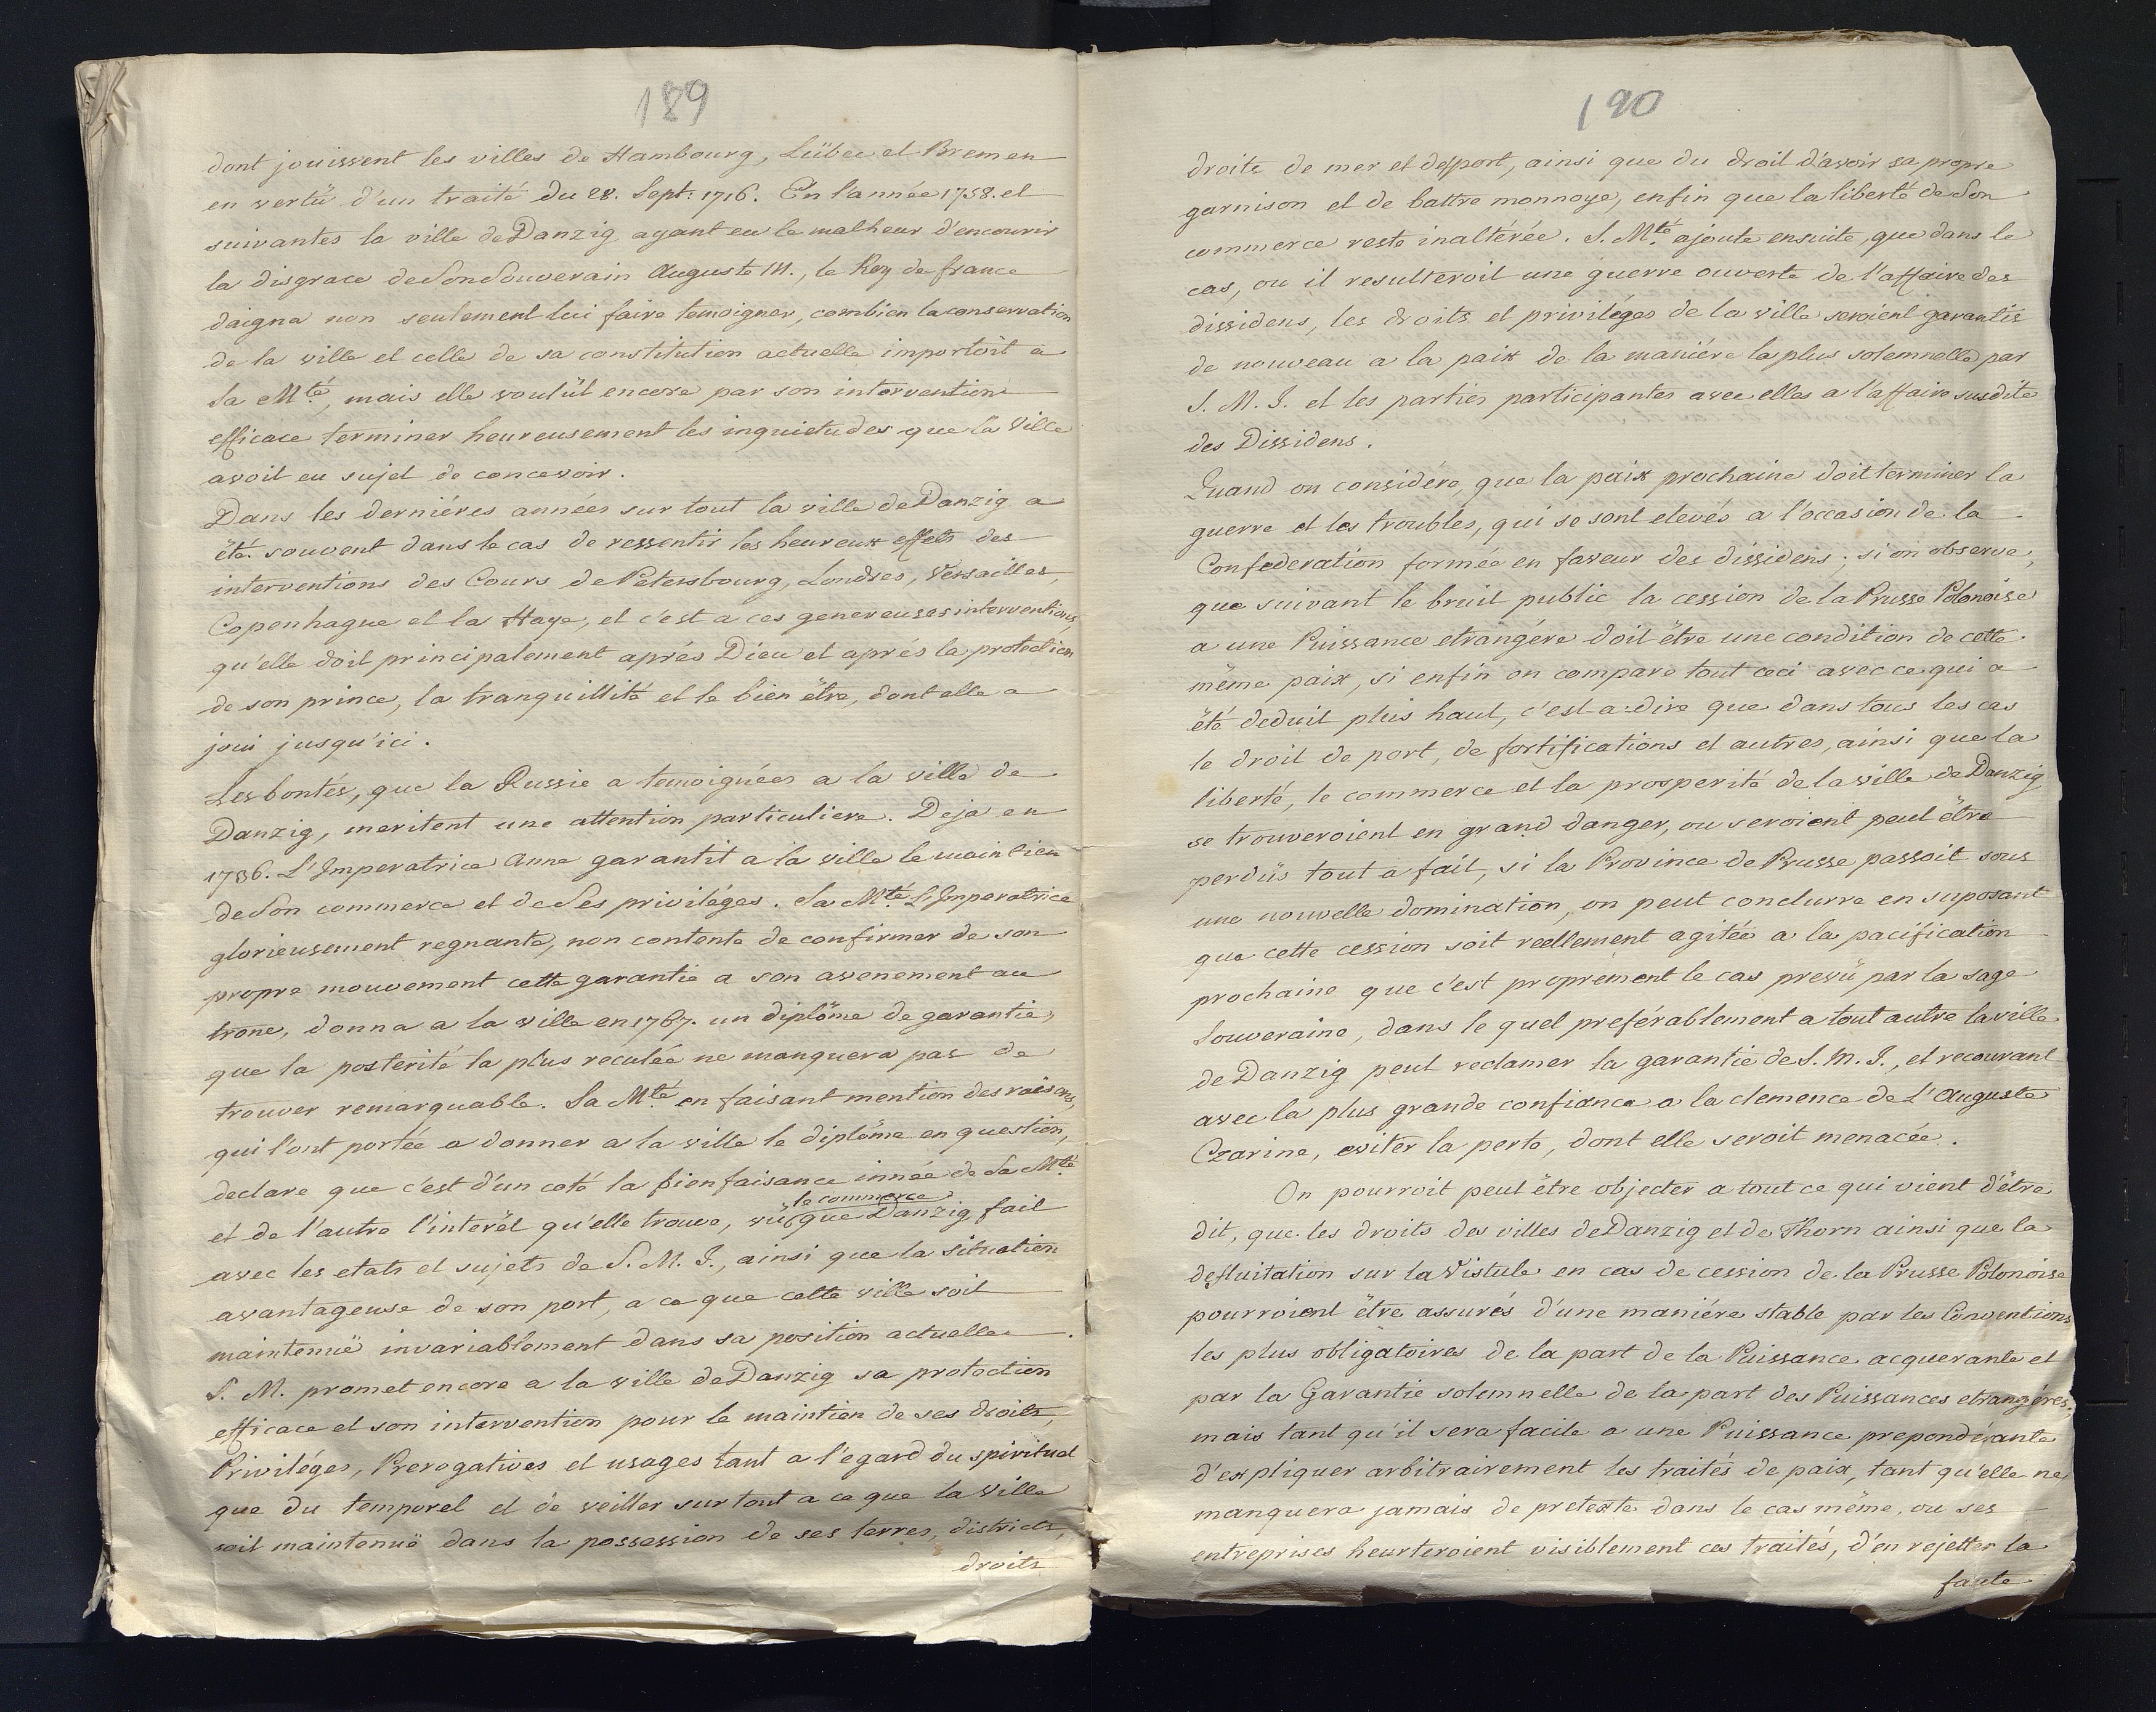 189
dont jouissent les villes de Hambourg, Lübec et Bremen
en vertü d'un traité du 28. Sept: 1716. En l'année 1758. et
suivantes la ville de Danzig ayant eu le malheur d'encourir
la disgrace de Son Souverain Auguste III., le Roy de france
daigna non seulement lui faire temoigner, combien la conservation
de la ville et celle de sa constitution actuelle importoit a
Sa Mté, mais elle voulüt encore par son intervention
efficace terminer heureusement les inquietudes que la Ville
avoit eu sujet de concevoir.
Dans les derniéres années sur tout la ville de Danzig a
été souvent dans le cas de ressentir les heureux effets des
interventions des Cours de Petersbourg, Londres, Versailles,
Copenhague et la Haye, et c'est a ces genereuses interventions,
qu'elle doit principalement aprés Dieu et aprés la protection
de son prince, la tranquillité et le bien être, dont elle a
joui jusqu'ici.
Les bontés, que la Russie a temoignées a la ville de
Danzig, meritent une attention particuliere. Deja en
1736. L'Imperatrice Anne garantit a la ville le maintien
de Son commerce et de Ses priviléges. Sa Mté L'Imperatrice
glorieusement regnante, non contente de confirmer de son
propre mouvement cette garantie a son avenement au
trone, donna a la ville en 1767. un diplôme de garantie,
que la posterité la plus reculée ne manquera pas de
trouver remarquable. Sa Mté en faisant mention des raisons,
qui l'ont portée a donner a la ville le diplôme en question,
declare que c'est d'un coté la bienfaisance innée de Sa Mté
et de l'autre l'interêt qu'elle trouve, vü le commerce que Danzig fait
avec les etats et sujets de S. M. I., ainsi que la situation
avantageuse de son port, a ce que cette ville soit
maintenuë invariablement dans sa position actuelle.
S. M. promet encore a la ville de Danzig sa protection
efficace et son intervention pour le maintien de ses droits,
Priviléges, Prerogatives et usages tant a l'egard du spirituel
que du temporel et de veiller sur tout a ce que la Ville
soit maintenuë dans la possession de ses terres, districts,
droits
190
droits de mer et de port, ainsi que du droit d'avoir sa propre
garnison et de battre monnoye, enfin que la liberté de Son
commerce reste inaltérée. S. Mté ajoute ensuite, que dans le
cas, ou il resulteroit une guerre ouverte de l'affaire des
dissidens, les droits et priviléges de la ville seroient garantis
de nouveau a la paix de la maniére la plus solemnelle par
S. M. I. et les parties participantes avec elles a l'affaire susdite
des Dissidens.
Quand on considére, que la paix prochaine doit terminer la
guerre et les troubles, qui se sont elevés a l'occasion de la
Confederation formée en faveur des dissidens; si on observe,
que suivant le bruit public la cession de la Prusse Polonoise
a une Puissance etrangére doit être une condition de cette
même paix, si enfin on compare tout ceci avec ce qui a
été deduit plus haut, c'est-a-dire que dans tous les cas
le droit de port, de fortifications et autres, ainsi que la
liberté, le commerce et la prosperité de la ville de Danzig
se trouveroient en grand danger, ou seroient peut être
perdüs tout a fait, si la Province de Prusse passoit sous
une nouvelle domination, on peut conclurre en suposant
que cette cession soit reellement agitée a la pacification
prochaine que c'est proprement le cas prevü par la sage
Souveraine, dans le quel preférablement a tout autre la ville
de Danzig peut reclamer la garantie de S. M. I., et recourant
avec la plus grande confiance a la clemence de L'Auguste
Czarine, eviter la perte, dont elle seroit menacée.
On pourroit peut être objecter a tout ce qui vient d'être
dit, que les droits des villes de Danzig et de Thorn ainsi que la
defluitation sur la Vistule en cas de cession de la Prusse Polonoise
pourroient être assurés d'une maniére stable par les Conventions
les plus obligatoires de la part de la Puissance acquerante et
par la Garantie solemnelle de la part des Puissances etrangéres;
mais tant qu'il sera facile a une Puissance prepondérante
d'expliquer arbitrairement les traités de paix, tant qu'elle ne
manquera jamais de pretexte dans le cas même, ou ses
entreprises heurteroient visiblement ces traités, d'en rejetter la
faute